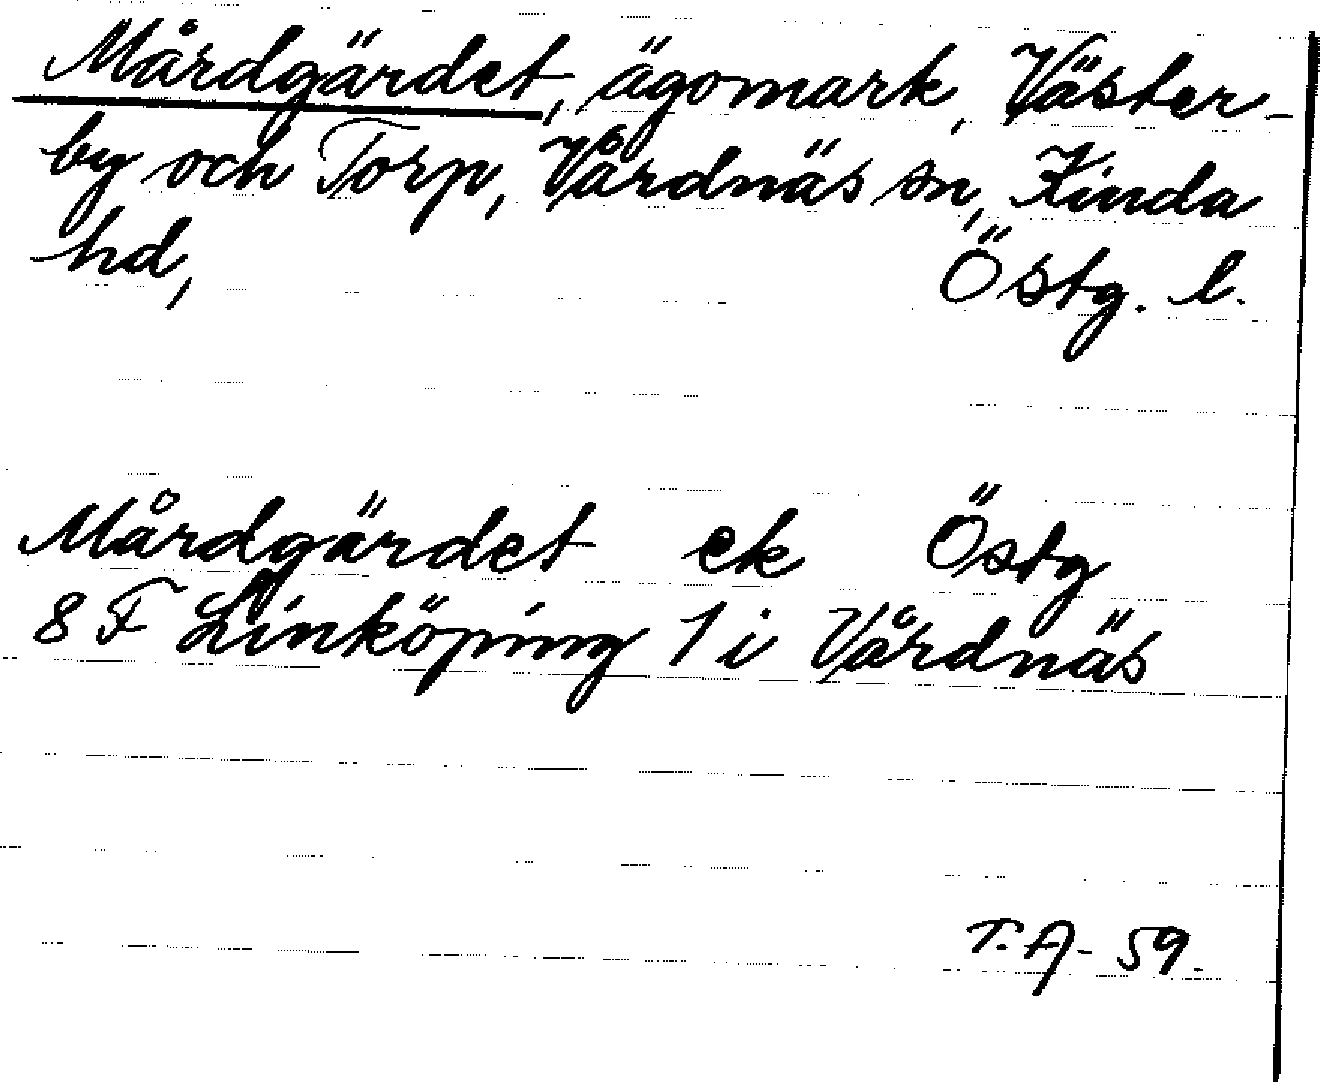 Mårdgärdet, ägomark, Väster-
by och Torp, Vårdnäs sn, Kinda
hd, Östg. l.
Mårdgärdet ek Östg
8 F Linköping 1 i Vårdnäs
T. A - 59.